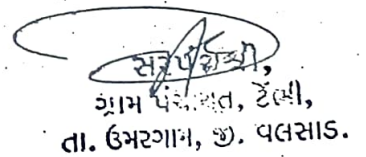 સરપંચશ્રી,
ગ્રામ પંચાયત, ટેંભી,
તા. ઉમરગામ, જી. વલસાડ.